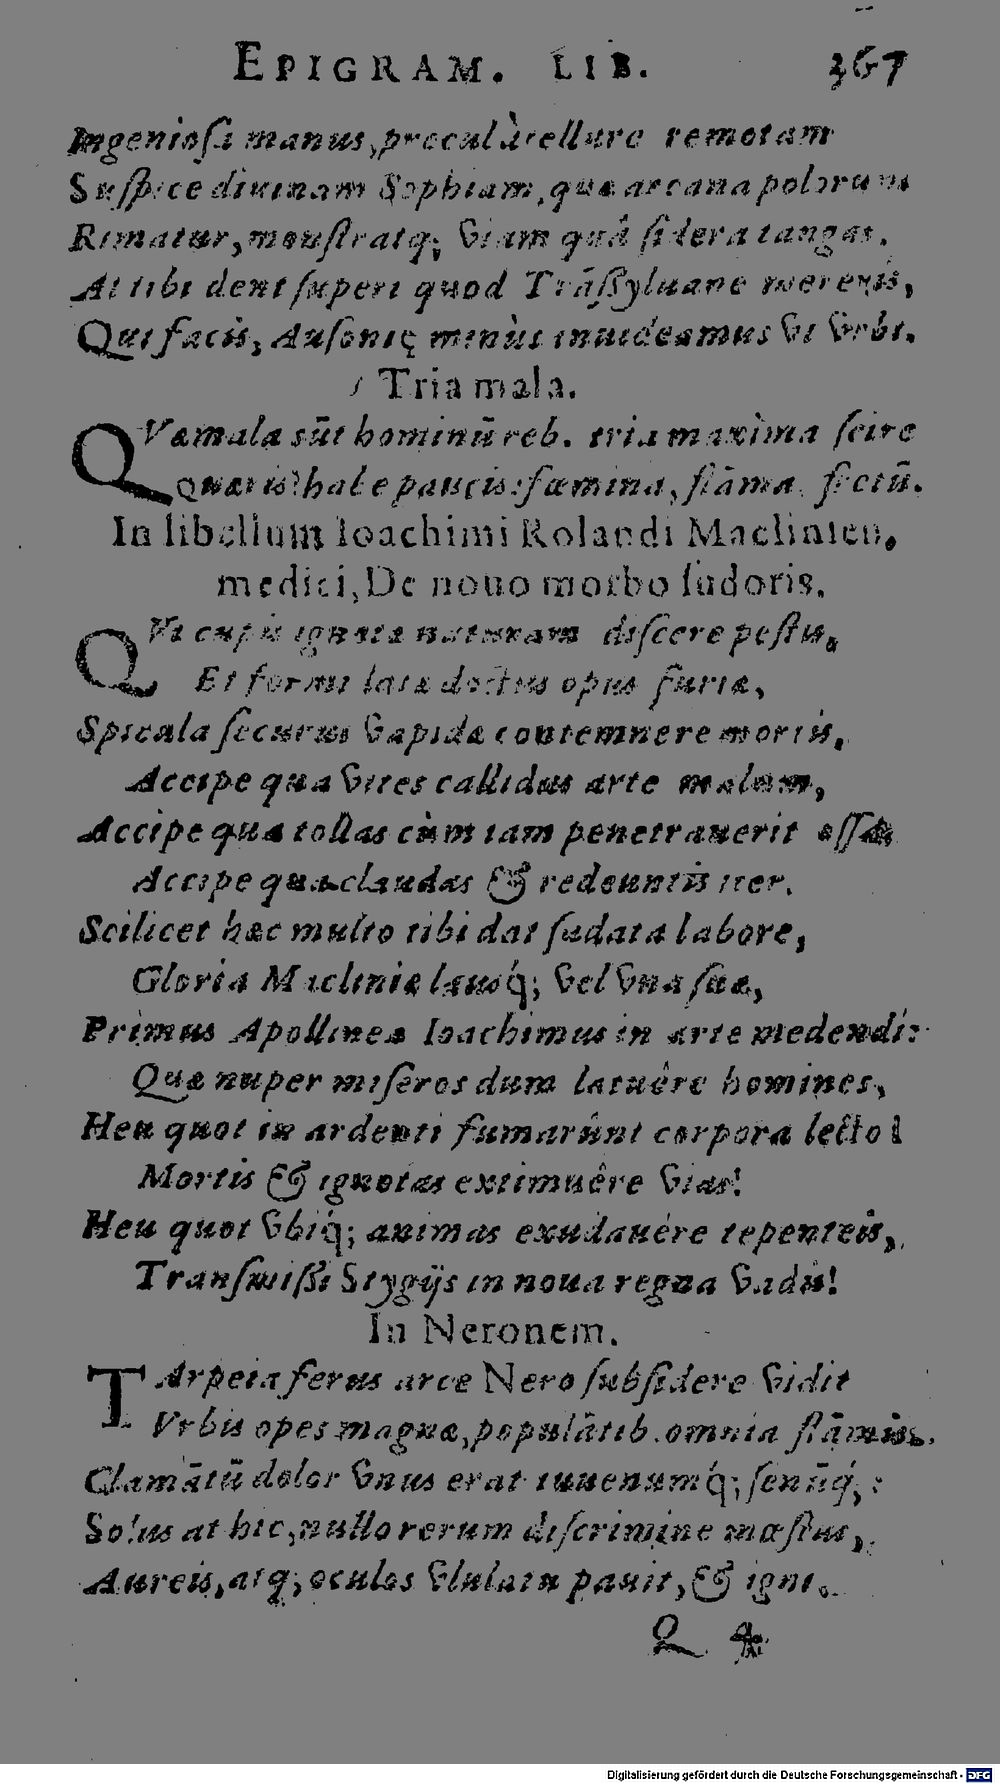 EPIGRAM. LIB. 367
Ingeniosa manus, procul à tellure remotam
Suſpice diuinam Sophiam, quæ arcana polorum
Rimatur, monſtratq; viam quâ ſidera tangas.
At tibi dent ſuperi quod Trāſſyluane mereris,
Qui facis, Auſonię minùs inuideamus vt Vrbi.
Tria mala.
QVæ mala sūt hominū reb. tria maxima ſcire
Quæris? habe paucis: fœmina, flāma, fretū.
In libellum Ioachimi Rolandi Maclinien.
medici, De nouo morbo ſudoris.
QVi cupis ignotæ naturam diſcere peſtis,
Et formidatæ doctius opus furiæ,
Spicula ſecurus vapidæ contemnere mortis,
Accipe qua vites callidus arte malum,
Accipe qua tollas cùm iam penetrauerit oſſa
Accipe qua claudas & redeuntis iter.
Scilicet hæc multo tibi dat ſudata labore,
Gloria Macliniæ lausq́; vel vna ſuæ,
Primus Apollinea Ioachimus in arte medendi:
Quæ nuper miſeros dum latuêre homines,
Heu quot in ardenti fumarûnt corpora lecto!
Mortis & ignotas extimuêre vias!
Heu quot vbiq́; animas exudauêre tepenteis,
Tranſmiſſi Stygijs in noua regna vadis!
In Neronem.
TArpeia ferus arce Nero ſubſidere vidit
Vrbis opes magnæ, populātib. omnia flāmis.
Clamātū dolor vnus erat iuuenumq́; ſenūq́;:
Solus at hic, nullo rerum diſcrimine mœſtus,
Aureis, atq; oculos vlulatu pauit, & igni.
Q
Digitalisierung gefördert durch die Deutsche Forschungsgemeinschaft - DFG